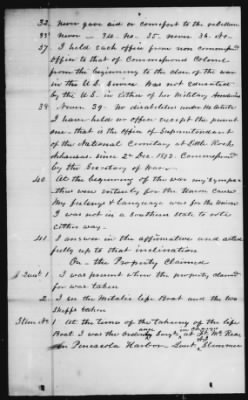 32. never gave aid or comfort to the rebellion
33 Never — 34. No. 35. never 36. No
37 I held each office from non commissd
Office to that of Commissioned Colonel
from the beginning to the close of the war
in the U.S. Service Was not
by the U.S. in either of her Military
38 Never 39. No disabilities under statute
I have held no office except the present
one — that is the office of Superintendent
of the National Cemetery at Little Rock
Arkansas. since 2d Dec. 1873. Commissiond
by the Secretary of War.
40 At the beginning of the war my sympa-
thies were entirely for the Union cause
My feelings & Language was for the Union
I was not in a southern state to vote
either way.
41 I answer in the affirmative and acted
fully up to that inclination
On the Property Claimed
1 I was present when the property
for was taken
2. I see the Metalic Life Boat and the two
Skiffs taken
Item No 1 At the time of the taking of the life
Boat I was the Ordnance Sergt in charge at Ft. McRea
in Pensacola Harbor Lieut. Slemmer